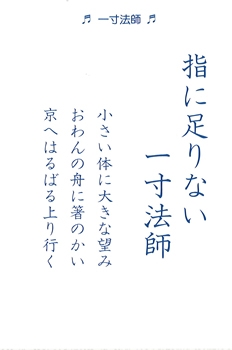 ♬ 一寸法師 ♬
指に足りない
一寸法師
小さい体に大きな望み
おわんの舟に箸のかい
京へはるばる上り行く